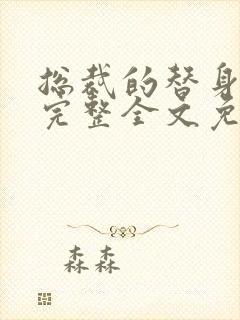 总裁的替身
完整全文免
森森